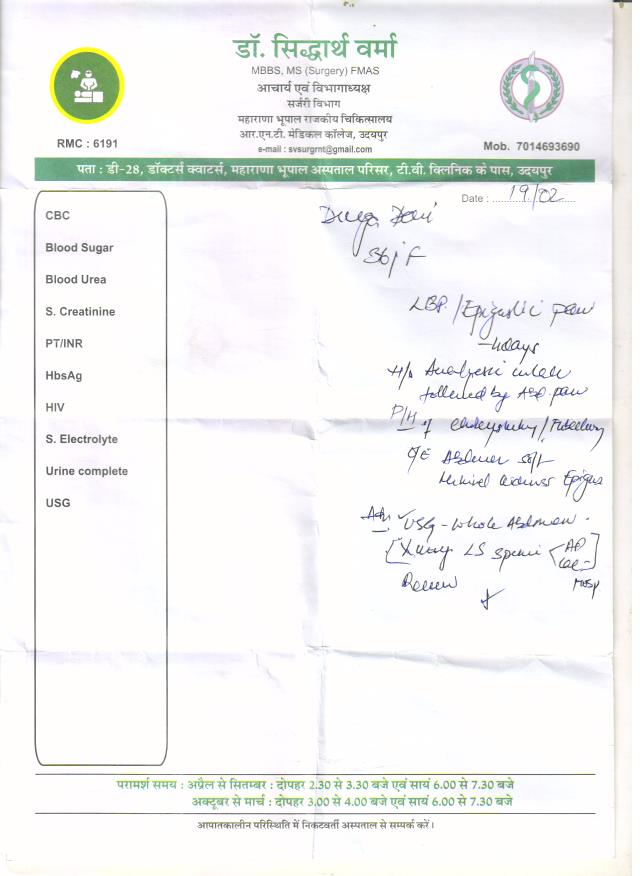 डॉ. सिद्धार्थ वर्मा
MBBS, MS (Surgery) FMAS
आचार्य एवं विभागाध्यक्ष
सर्जरी विभाग
महाराणा भूपाल राजकीय चिकित्सालय
आर.एन.टी. मेडिकल कॉलेज, उदयपुर
e-mail : svsurgrnt@gmail.com
RMC : 6191
Mob. 7014693690
पता : डी-28, डॉक्टर्स क्वाटर्स, महाराणा भूपाल अस्पताल परिसर, टी.वी. क्लिनिक के पास, उदयपुर
Date : 19/02
CBC
Blood Sugar
Blood Urea
S. Creatinine
PT/INR
HbsAg
HIV
S. Electrolyte
Urine complete
USG
LBP / Epigastric pain
4days
H/o Analgesic intake
followed by Abd. pain
P/H of
O/E Abdomen soft
USG - Whole Abdomen
X-ray LS spine AP
Review
परामर्श समय : अप्रैल से सितम्बर : दोपहर 2.30 से 3.30 बजे एवं सायं 6.00 से 7.30 बजे
अक्टूबर से मार्च : दोपहर 3.00 से 4.00 बजे एवं सायं 6.00 से 7.30 बजे
आपातकालीन परिस्थिति में निकटवर्ती अस्पताल से सम्पर्क करें।